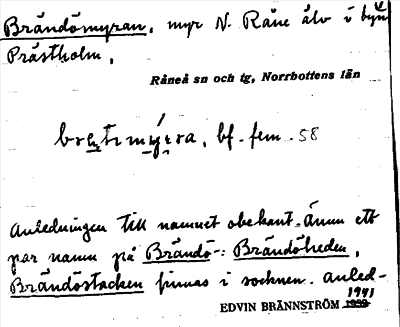 Brändömyran, myr N. Råne älv i byn
Prästholm.
Råneå sn och tg, Norrbottens län
bf. fem. 58
Anledningen till namnet obekant. Ännu ett
par namn på Brändö-: Brändöheden,
Brändöstacken finnas i socknen. Anled-
1941
EDVIN BRÄNNSTRÖM